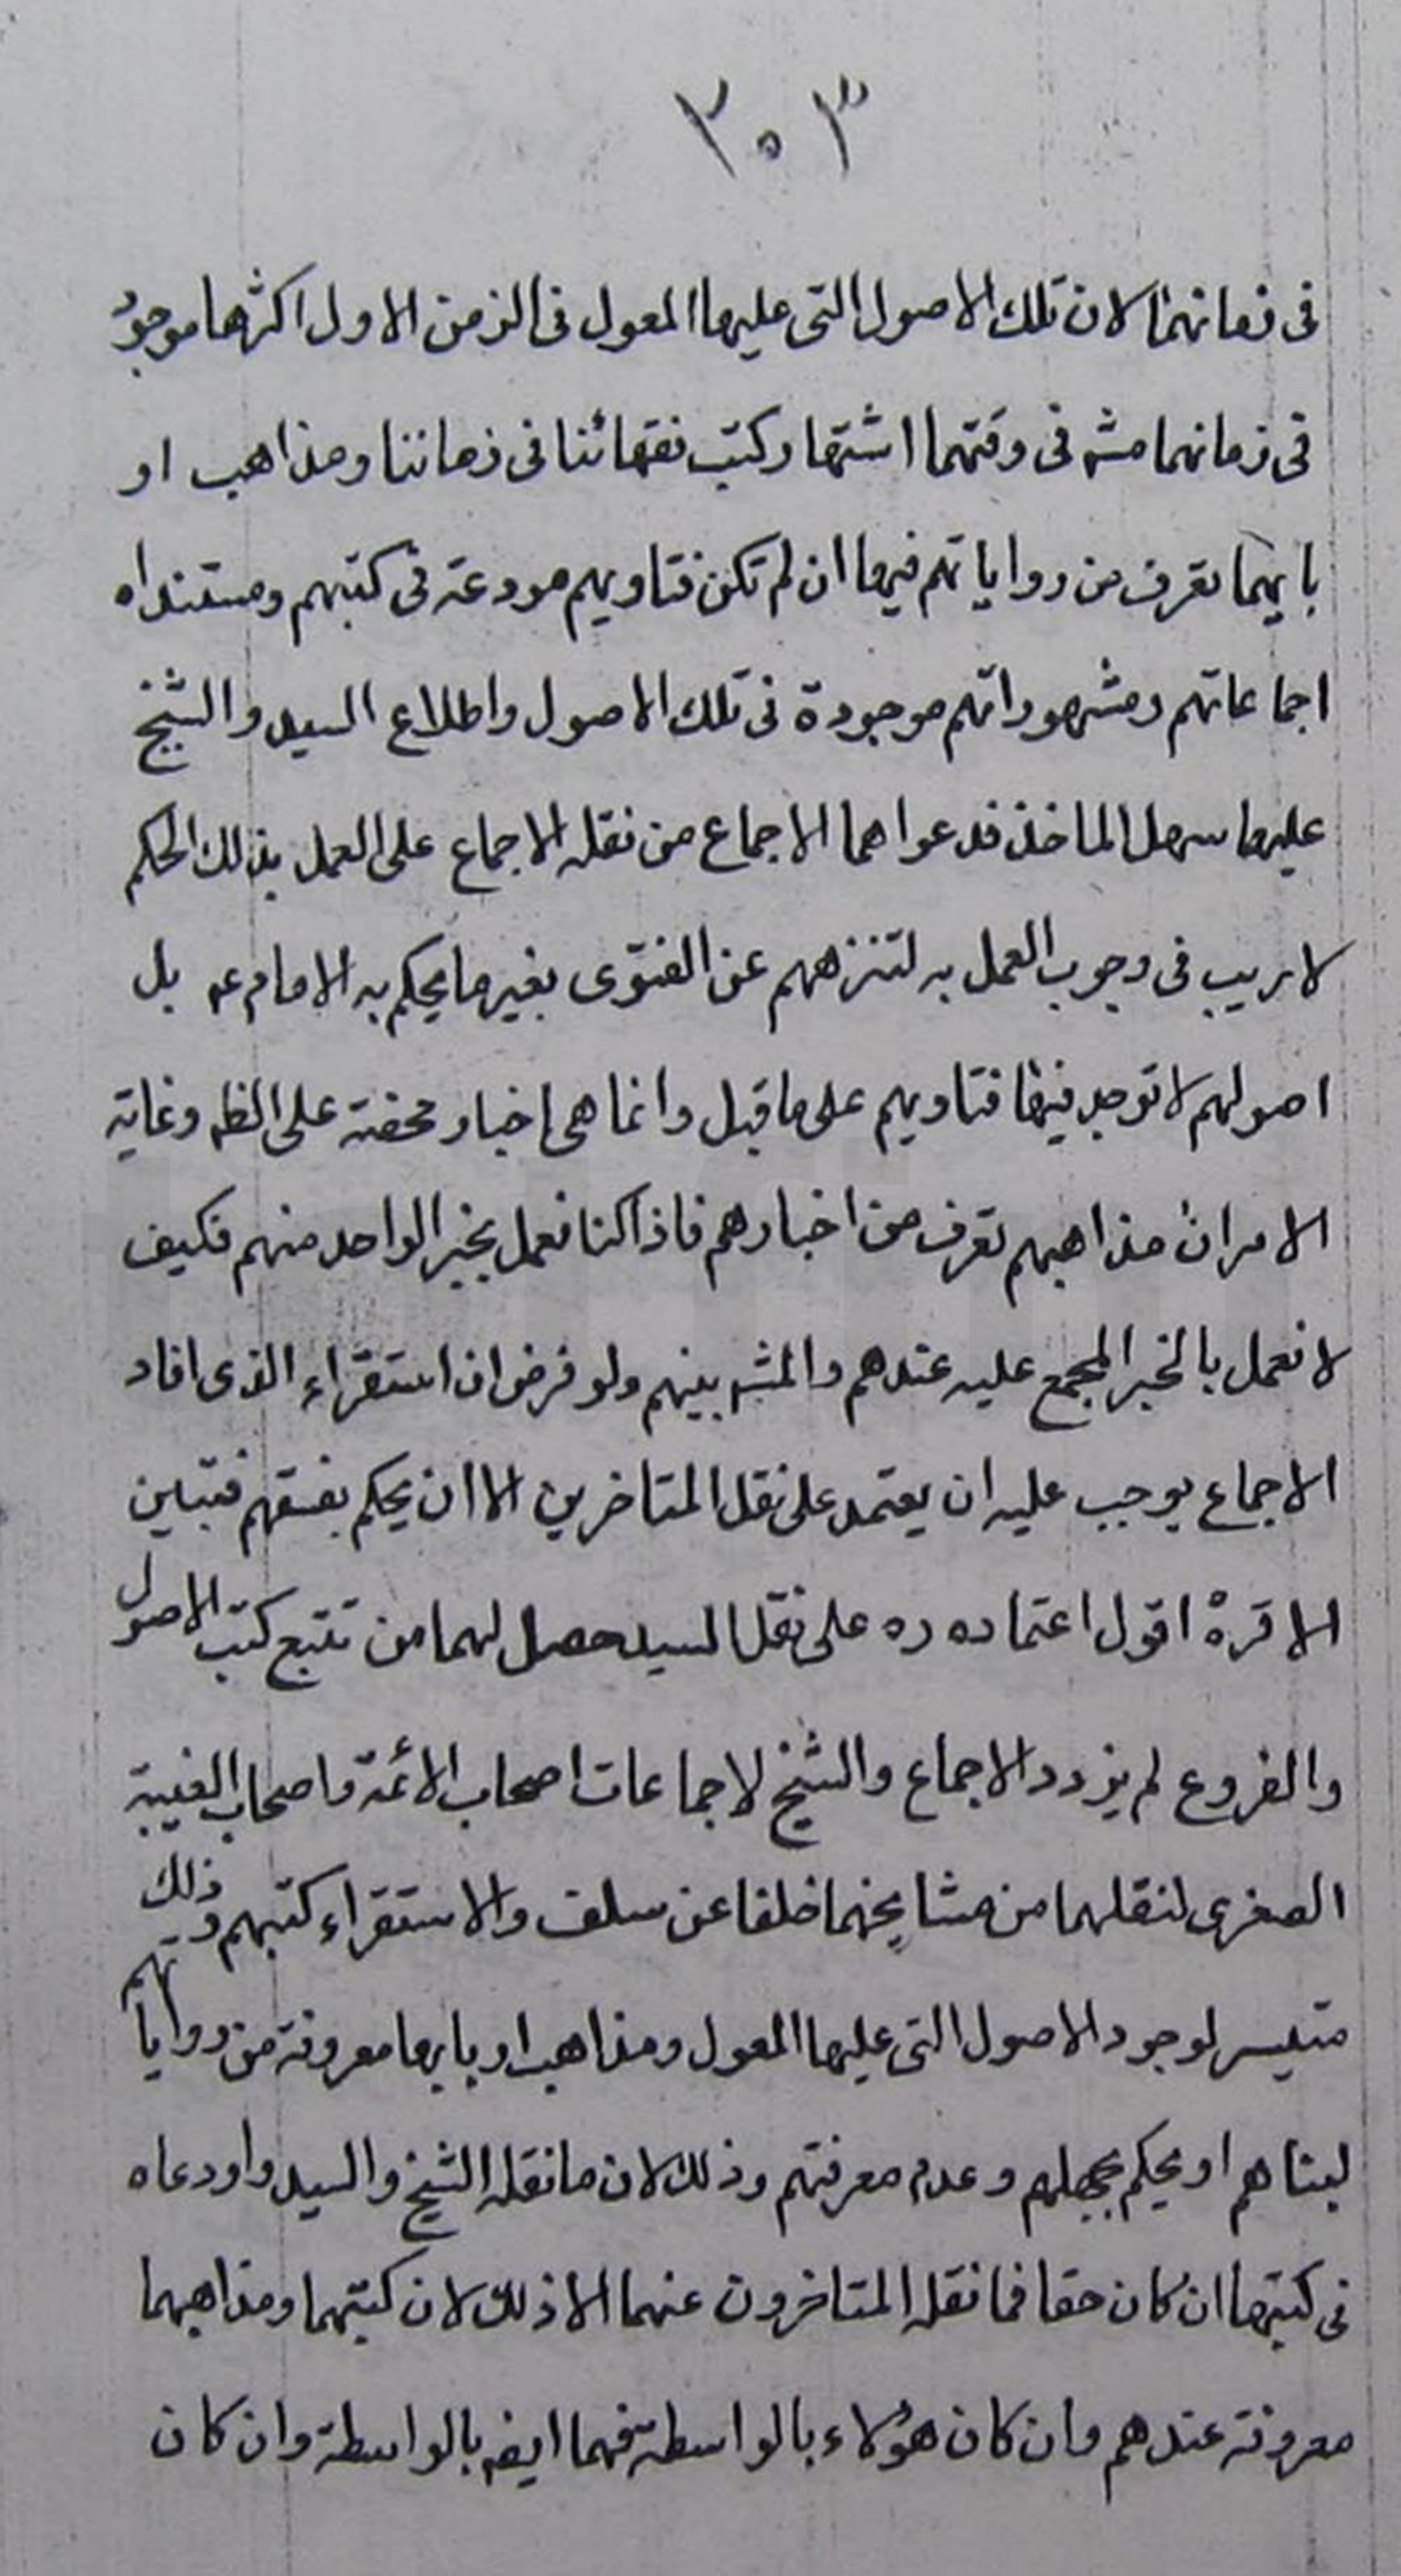 ٣٠٣
فى زمانهما لان تلك الاصول التى عليها المعول فى الزمن الاول اكثرها موجود
فى زمانهما مشه فى وقتهما اشتهار كتب فقهائنا فى زماننا ومذاهب ار
بابهما تعرف من رواياتهم فيها ان لم تكن فتاويهم مودعة فى كتبهم ومستنداه
اجماعاتهم ومشهوراتهم موجودة فى تلك الاصول واطلاع السيد والشيخ
عليها سهل الماخذ فدعواهما الاجماع من نقله الاجماع على العمل بذلك الحكم
لا ريب فى وجوب العمل به لتنزههم عن الفتوى بغير ما يحكم به الامام ع بل
اصولهم لا توجد فيها فتاويهم على ما قيل وانما هى اخبار محضة على الظ وغاية
الامر ان مذاهبهم تعرف من اخبارهم فاذا كنا نعمل بخبر الواحد منهم فكيف
لا نعمل بالخبر المجمع عليه عندهم والمشه بينهم ولو فرض ان استقراء الذى افاد
الاجماع يوجب عليه ان يعتمد على نقل المتاخرين الا ان يحكم بفسقهم فتباين
الاقرة اقول اعتماده ره على نقل السيد حصل لهما من تتبع كتب الاصول
والفروع لم يزدد الاجماع والشيخ لاجماعات اصحاب الائمة واصحاب الغيبة
الصغرى لنقلهما من مشايخهما خلفا عن سلف والاستقراء كتبهم وذلك
متيسر لوجود الاصول التى عليها المعول ومذاهب اربابها معروفة من رواياتهم
او يحكم بجهلهم وعدم معرفتهم وذلك لان ما نقله الشيخ والسيد واودعاه
فى كتبهما ان كان حقا فما نقله المتاخرون عنهما الا ذلك لان كتبهما ومذاهبهما
معروفة عندهم وان كان هؤلاء بالواسطة فهما ايض بالواسطة وان كان